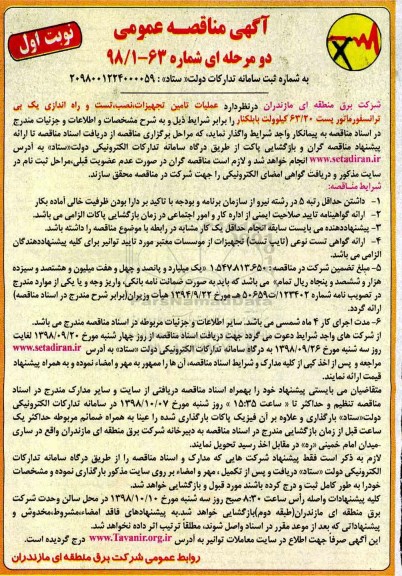 نوبت اول
آگهی مناقصه عمومی
دو مرحله ای شماره ۶۳-۹۸/۱
به شماره ثبت سامانه تدارکات دولت« ستاد» : ۲۰۹۸۰۰۱۲۲۴۰۰۰۰۵۹
شرکت برق منطقه ای مازندران درنظردارد عملیات تامین تجهیزات،نصب،تست و راه اندازی یک بی
ترانسفورماتور پست ۶۳/۲۰ کیلوولت بابلکنار را برابر شرایط ذیل و به شرح مشخصات و اطلاعات و جزئیات مندرج
در اسناد مناقصه به پیمانکار واجد شرایط واگذار نماید، که مراحل برگزاری مناقصه از دریافت اسناد مناقصه تا ارائه
پیشنهاد مناقصه گران و بازگشایی پاکت از طریق درگاه سامانه تدارکات الکترونیکی دولت«ستاد» به آدرس
www.setadiran.ir انجام خواهد شد و لازم است مناقصه گران در صورت عدم عضویت قبلی،مراحل ثبت نام در
سایت مذکور و دریافت گواهی امضای الکترونیکی را جهت شرکت در مناقصه محقق سازند.
شرایط مناقصه:
۱- داشتن حداقل رتبه ۵ در رشته نیرو از سازمان برنامه و بودجه با تاکید بر دارا بودن ظرفیت خالی آماده بکار
۲- ارائه گواهینامه تایید صلاحیت ایمنی از اداره کار و امور اجتماعی در زمان بازگشایی پاکات الزامی می باشد.
۳- پیشنهاددهنده می بایست سابقه انجام حداقل یک کار مشابه در رابطه با موضوع مناقصه را داشته باشد.
۴- ارائه گواهی تست نوعی (تایپ تست) تجهیزات از موسسات معتبر مورد تایید توانیر برای کلیه پیشنهاددهندگان
الزامی می باشد.
۵- مبلغ تضمین شرکت در مناقصه : ۱،۵۴۷،۸۱۳،۶۵۰ «یک میلیارد و پانصد و چهل و هفت میلیون و هشتصد و سیزده
هزار و ششصد و پنجاه ریال تمام» می باشد که باید به صورت ضمانت نامه بانکی، واریز وجه و یا یکی از موارد مندرج
در تصویب نامه شماره ۱۲۳۴۰۲/ت۵۰۶۵۹ه مورخ ۱۳۹۴/۹/۲۲ هیأت وزیران(برابر شرح مندرج در اسناد مناقصه)
ارائه گردد.
۶- مدت اجرای کار ۴ ماه شمسی می باشد. سایر اطلاعات و جزئیات مربوطه در اسناد مناقصه مندرج می باشد.
از شرکت های واجد شرایط دعوت می گردد جهت دریافت اسناد مناقصه از روز چهار شنبه مورخ ۱۳۹۸/۰۹/۲۰ لغایت
روز سه شنبه مورخ ۱۳۹۸/۰۹/۲۶ به درگاه سامانه تدارکات الکترونیکی دولت «ستاد» به آدرس www.setadiran.ir
مراجعه و پس از اخذ کپی از کلیه مدارک و شرایط اسناد مناقصه، آن ها را ممهور به مهر و امضاء نموده و به همراه پیشنهاد
قیمت ارائه نمایند.
متقاضیان می بایستی پیشنهاد خود را بهمراه اسناد مناقصه دریافتی از سایت و سایر مدارک مندرج در اسناد
مناقصه تنظیم و حداکثر تا « ساعت ۱۵:۳۵ » روز شنبه مورخ ۱۳۹۸/۱۰/۰۷ در سامانه تدارکات الکترونیکی
دولت«ستاد» بارگذاری و علاوه بر آن فیزیک پاکات بارگذاری شده را عینا به همراه ضمائم مربوطه حداکثر یک
ساعت قبل از زمان بازگشایی مندرج در اسناد مناقصه به دبیرخانه شرکت برق منطقه ای مازندران واقع در ساری
-میدان امام خمینی (ره)- در مقابل اخذ رسید تحویل نمایند.
لازم به ذکر است فقط پیشنهاد شرکت هایی که مدارک و اسناد مناقصه را از طریق درگاه سامانه تدارکات
الکترونیکی دولت «ستاد» دریافت و پس از تکمیل ، مهر و امضاء بر روی سایت مذکور بارگذاری نموده و مشخصات
خودرا به طور کامل ثبت و درج کرده باشند مورد قبول و بازگشایی خواهد شد.
کلیه پیشنهادات واصله رأس ساعت ۸:۳۰ صبح روز سه شنبه مورخ ۱۳۹۸/۱۰/۱۰ در محل سالن وحدت شرکت
برق منطقه ای مازندران(طبقه دوم)بازگشایی خواهد شد.به پیشنهادهای فاقد امضاء،مشروط،مخدوش و
پیشنهاداتی که بعد از موعد مقرر در اسناد واصل شوند، مطلقاً ترتیب اثر داده نخواهد شد.
این آگهی صرفاً جهت اطلاع در سایت معاملات توانیر به آدرس www.Tavanir.org.ir درج گردیده است.
روابط عمومی شرکت برق منطقه ای مازندران